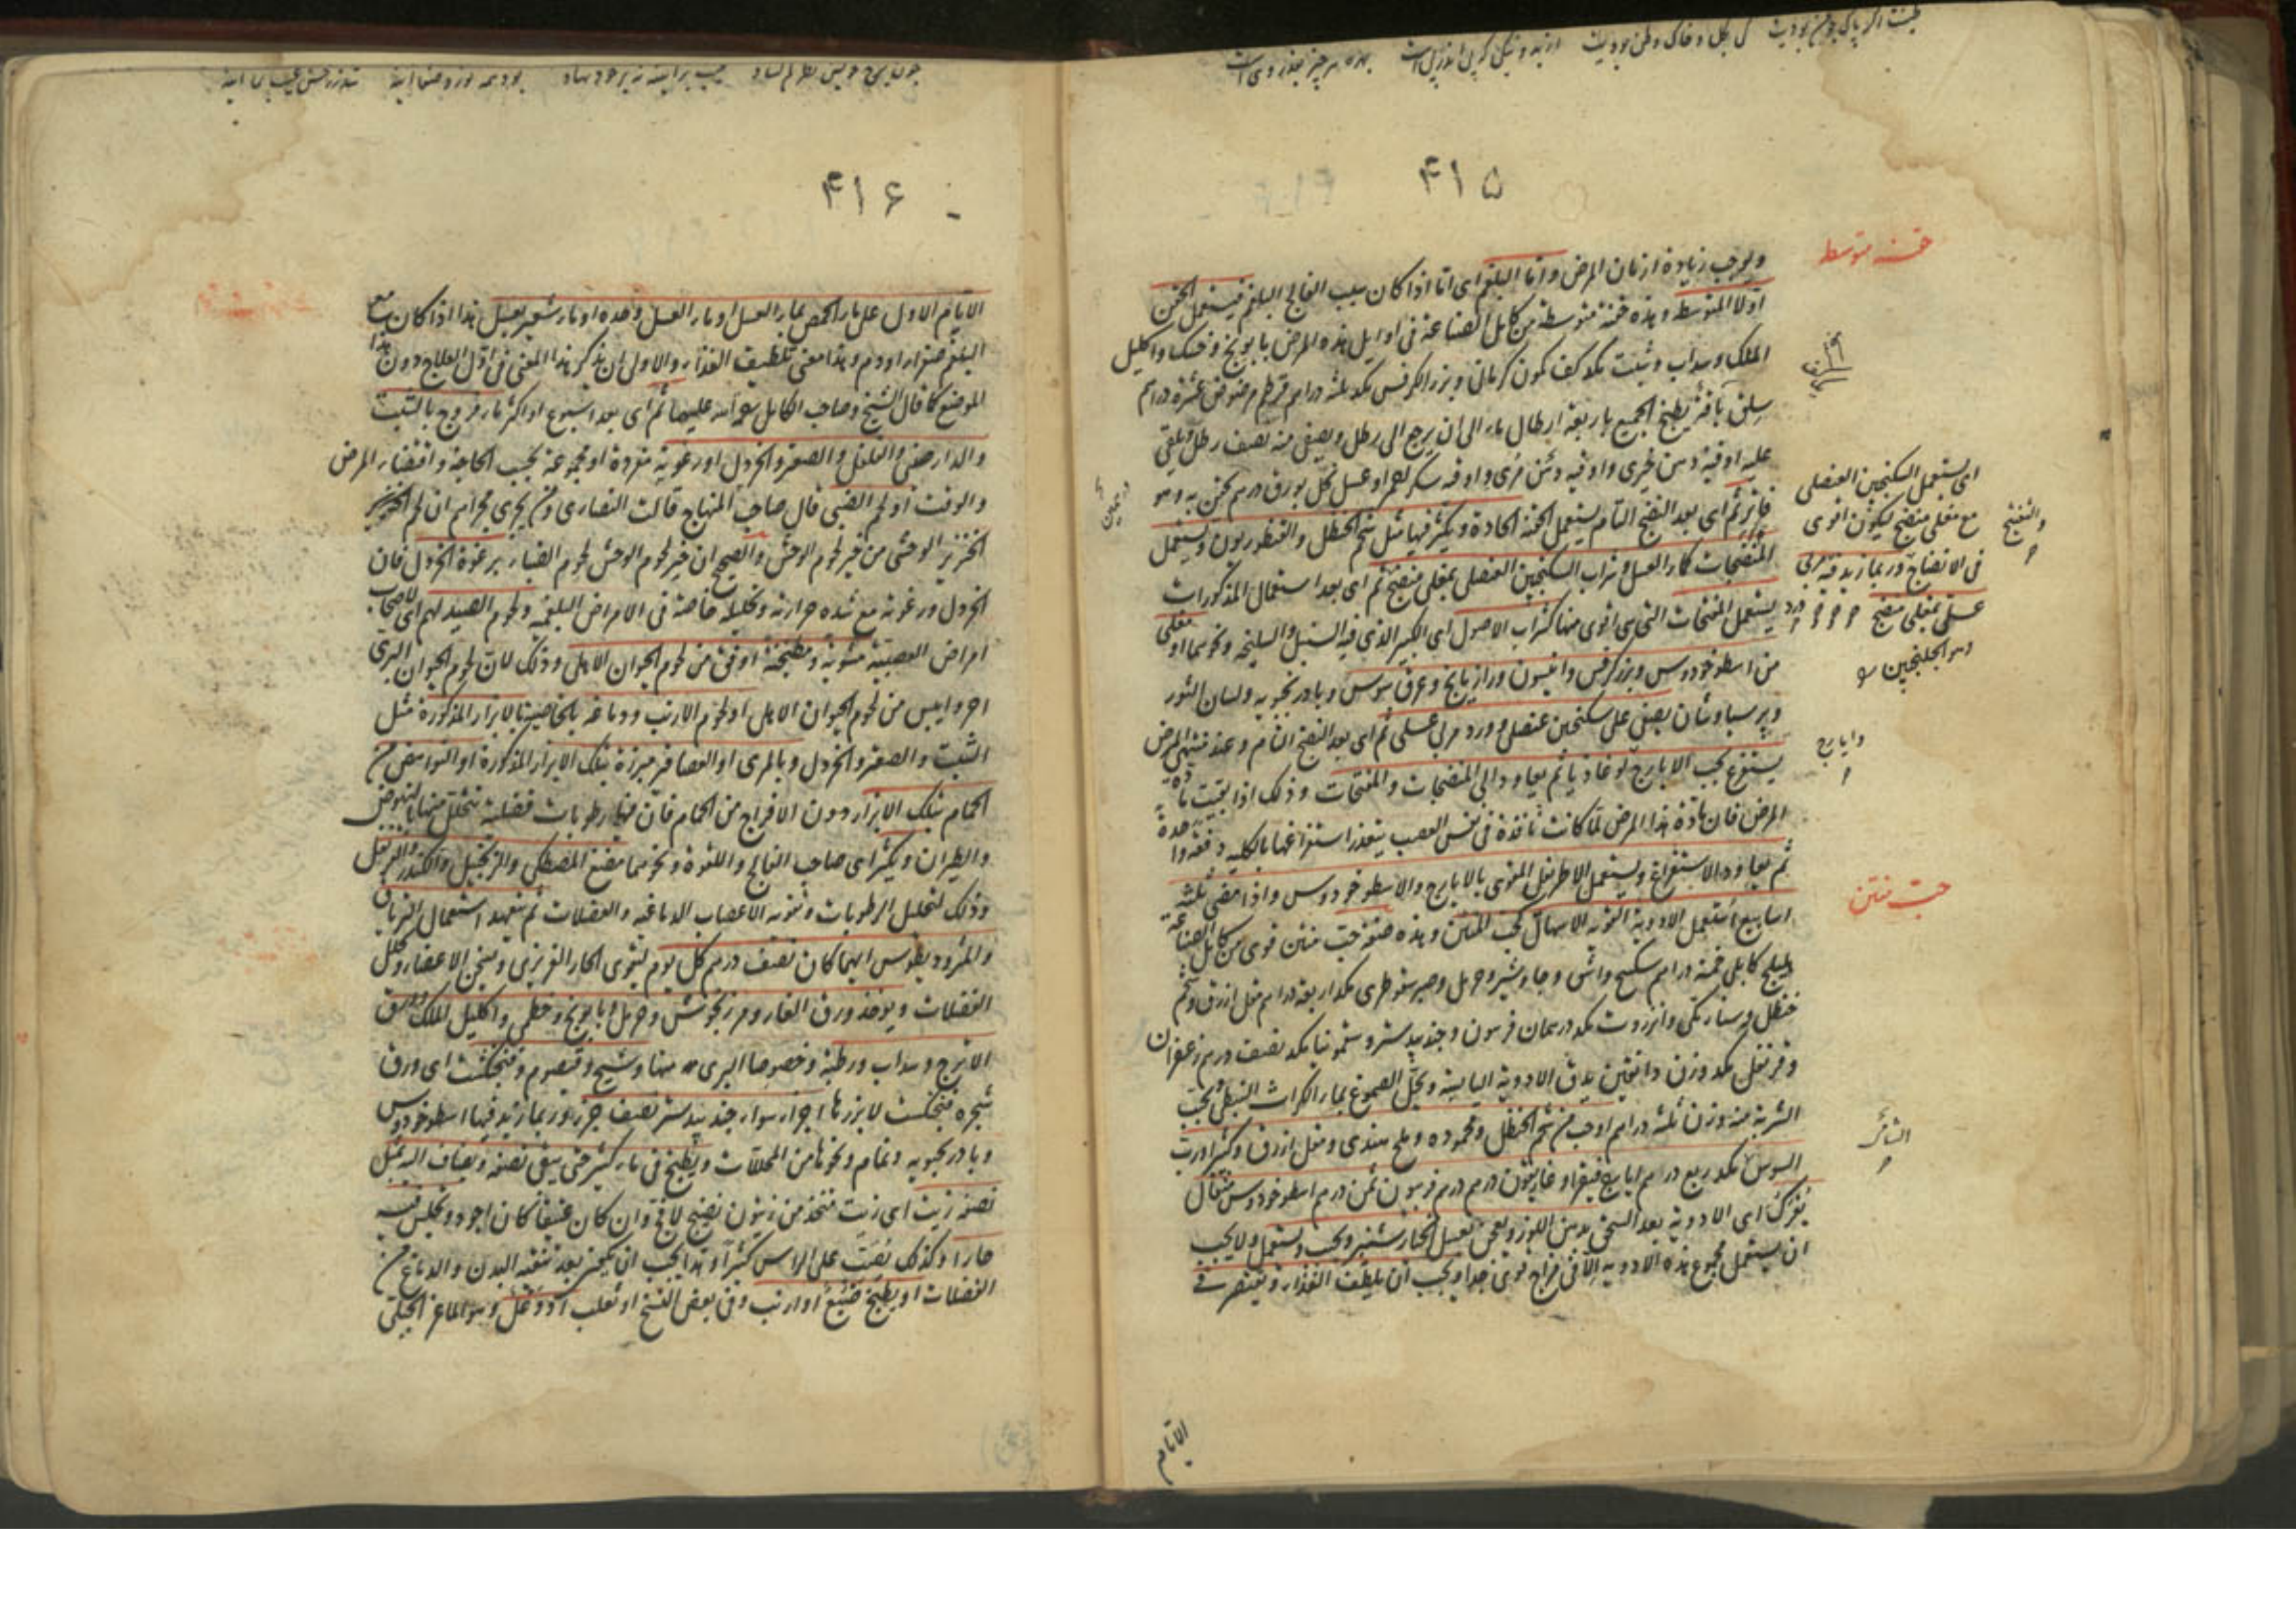 ۴۱۵
حقنه متوسط
ويوجب زيادة ازمان المرض واما البلغم اى اما اذا كان سبب الفالج البلغم فيستعمل الحقن
اولا المتوسطة وهذه حقنة متوسطة من كامل الصناعة فى اوايل هذه المرض بابونج وحسك واكليل
الملك وسداب وشبت مكد كف كمون كرمانى وبزر الكرفس مكد ثلثة دراهم قرطم مرضوض عشرة دراهم
سلق باقة يطبخ الجميع باربعة ارطال ماء الى ان يرجع الى رطل ويصفى منه نصف رطل ويلقى
عليه اوقية دهن خيرى واوقية مرى واوقية سكر احمر او عسل نحل بورق درهم يحقن به وهو
فاتر ثم اى بعد النضج التام يستعمل الحقنة الحادة ويكثر فيها مثل شحم الحنظل والقنطوريون ويستعمل
المنضجات كماء العسل وشراب السكنجبين العنصلى بمغلى منضج ثم اى بعد استعمال المذكورات
يستعمل المفتحات التى هى اقوى منها كشراب الاصول اى الكبير الذى فيه السنبل والسليخة ونحوهما او مغلى
من اسطوخودوس وبزر كرفس وانيسون ورازيانج وعرق سوس وبادرنجبويه ولسان الثور
وپرسياوشان يصفى على سكنجبين عنصلى وورد مربى عسلى ثم اى بعد النضج التام وعند منتهى المرض
يستفرغ بحب الايارج لوغاذيا ثم يعاود الى المنضجات والمفتحات وذلك اذا بقيت مادة
المرض فان مادة هذا المرض لما كانت نافذة فى نفس العصب يتعذر استفراغها بالكلية دفعة واحدة
ثم يعاود الاستفراغ ويستعمل الاطريفل المقوى بالايارج والاسطوخودوس واذا مضى ثلثة
اسابيع استعمل الادوية القوية الاسهال كحب المنتن وهذه صفة حب منتن قوى من كامل الصناعة
هليلج كابلى خمسة دراهم سكبينج واشق وجاوشير وحرمل وصبر سقوطرى مكد اربعة دراهم مقل ازرق وشحم
حنظل وسنا مكى وانزروت مكد درهمان فربيون وجندبيدستر وسقمونيا مكد نصف درهم زعفران
وقرنفل مكد وزن دانقين يدق الادوية اليابسة ويحل الصموغ بماء الكراث النبطى ويحبب
الشربة منه وزن ثلثة دراهم او حب من شحم الحنظل ومحموده وملح هندى ومقل ازرق وكثيرا ورب
السوس مكد ربع درهم ايارج فيقرا وغاريقون درهم درهم فربيون ثمن درهم اسطوخودوس مثقال
يفرك اى الادوية بعد السحق بدهن اللوز ويعجن بعسل الخيارشنبر ويحبب ويستعمل ولا يجب
ان يستعمل مجموع هذه الادوية الا فى مزاج قوى جدا ويجب ان يلطف الغذاء ويقتصر فى
اى يستعمل السكنجبين العنصلى
مع مغلى منضج ليكون اقوى
فى الانضاج وربما زيد فيه مربى
عسلى بمغلى منضج
وهو الجلنجبين
والتفتيح
وايارج
حب منتن
الايام
۴۱۶
الايام الاول على ماء الحمص بماء العسل او ماء العسل وحده او ماء شعير بعسل هذا اذا كان مع
البلغم صفراء او دم وهذا معنى تلطيف الغذاء والاولى ان يذكر هذا المعنى فى اول العلاج دون هذا
الموضع كما قال الشيخ وصاحب الكامل رحمة الله عليهما ثم اى بعد اسبوع او اكثر ماء فروج بالشبت
والدارصينى والفلفل والصعتر والخردل او رغوته مفردة او مجموعة بحسب الحاجة واقتضاء المرض
والوقت او لحم الظبى قال صاحب المنهاج قالت النصارى ومن يجرى مجراهم ان لحم الخنزير
الخنزير الوحشى من خير لحوم الوحش والصحيح ان خير لحوم الوحش لحوم الظباء برغوة الخردل فان
الخردل ورغوته مع شدة حرارته وتحليله خاصة فى الامراض البلغمية ولحوم الصيد لهم اى لاصحاب
امراض العصبية مشوية ومطبخنة اوفق من لحوم الحيوان الاهلى وذلك لان لحوم الحيوان البرى
احر وايبس من لحوم الحيوان الاهلى او لحوم الارنب ودماغه بالخاصية بالابزار المذكورة مثل
الشبت والصعتر والخردل وبالمرى او العصافير مبزرة بتلك الابزار المذكورة او النواهض من
الحمام بتلك الابزار دون الافراخ من الحمام فان فيها رطوبات فضلية تتحلل منها بالنهوض
والطيران ويكثر اى صاحب الفالج واللقوة ونحوهما مضغ المصطكى والزنجبيل والكندر والفربيل
وذلك لتحليل الرطوبات وتقوية الاعصاب الدماغية والعضلات ثم يتعهد استعمال الترياق
والمثروديطوس ايهما كان نصف درهم كل يوم ليقوى الحار الغريزى ويسخن الاعضاء ويحلل
الفضلات ويوخذ ورق الغار ومرزنجوش وحرمل وبابونج وخطمى واكليل الملك وورق
الاترج وسداب ورطبة وخصوصا البرى منها وشيح وقيصوم وفنجنكشت اى ورق
شجره فنجنكشت لا بزرها اجزاء سواء جندبيدستر نصف جزء وربما زيد فيها اسطوخودوس
وبادرنجبويه ونمام ونحوها من المحللات ويطبخ فى ماء كثير حتى يبقى نصفه ويضاف اليه مثل
نصفه زيت اى زيت متخذ من زيتون نضيج لا فج وان كان عتيقا كان اجود ويجلس فيه
حارا وكذلك يصب على الراس كثيرا وهذا يجب ان يكون بعد تنقية البدن والدماغ من
الفضلات او يطبخ ضبع او ارنب وفى بعض النسخ او ثعلب او وعل وهو الماعز الجبلى